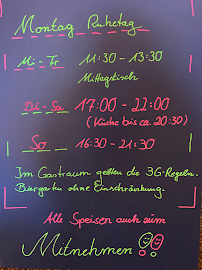 Montag Ruhetag
Mi - Fr 11:30 - 13:30
Mittagstisch
Di - Sa 17:00 - 22:00
(Küche bis ca. 20:30)
So 16:30 - 21:30
Im Gastraum gelten die 3G-Regeln.
Biergarten ohne Einschränkung.
Alle Speisen auch zum
Mitnehmen